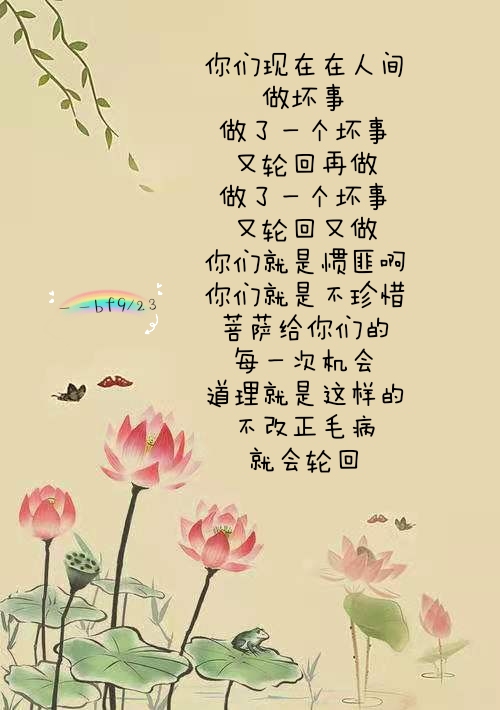 你们现在在人间
做坏事
做了一个坏事
又轮回再做
做了一个坏事
又轮回又做
你们就是惯匪啊
你们就是不珍惜
菩萨给你们的
每一次机会
道理就是这样的
不改正毛病
就会轮回
——bf9/23